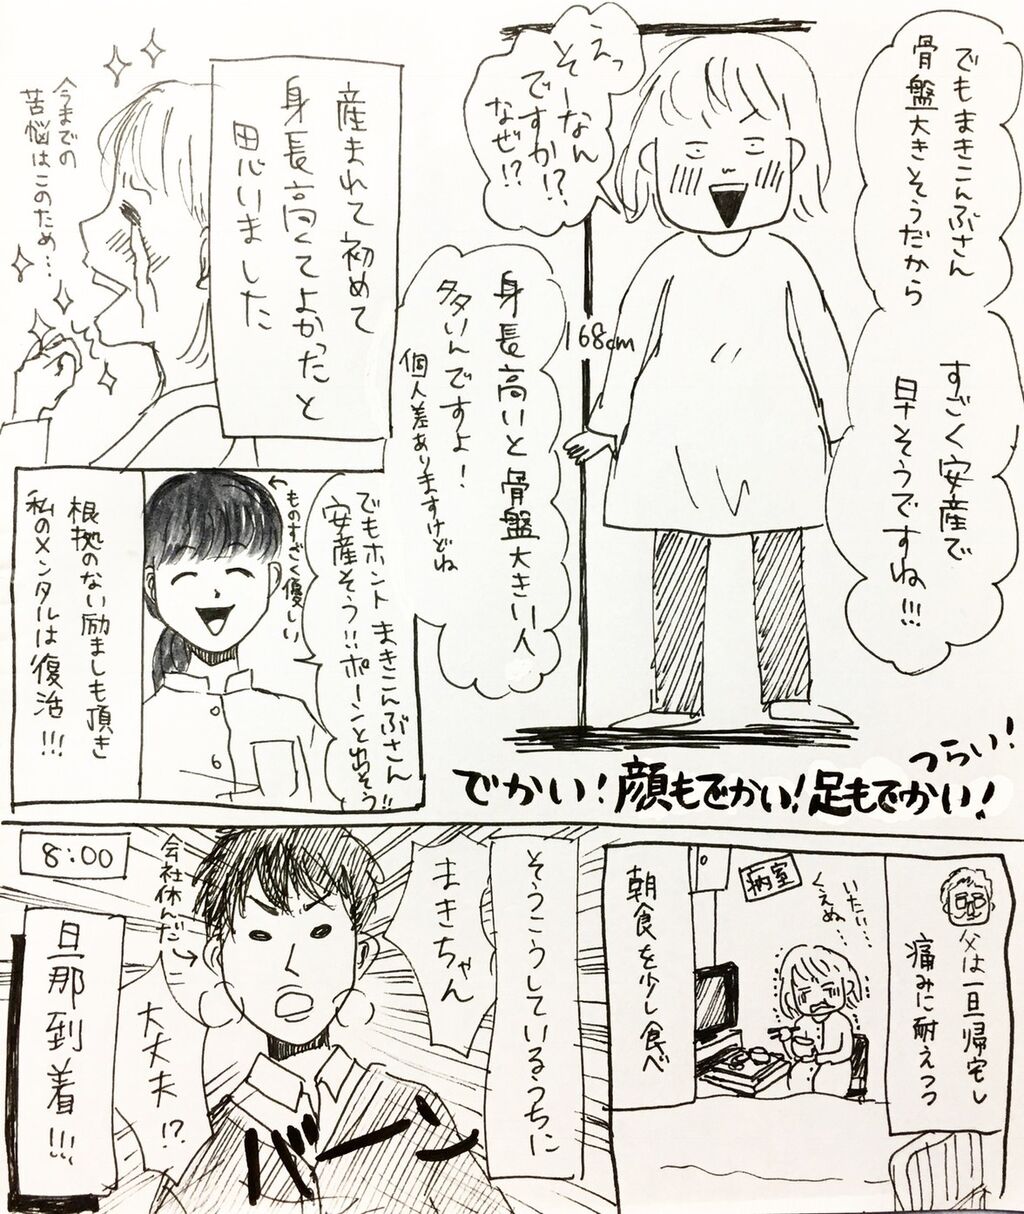 でもまきこんぶさん
骨盤大きそうだから
すごく安産で
早そうですね!!!
えっ
そーなん
ですか!?
なぜ!?
168cm
身長高いと骨盤大きい人
多いんですよ!
個人差ありますけどね
つらい!
でかい!顔もでかい!足もでかい!
産まれて初めて
身長高くてよかったと
思いました
今までの
苦悩はこのため…
でもホントまきこんぶさん
安産そう!!ポーンと出そう!!
ものすごく優しい
根拠のない励ましも頂き
私のメンタルは復活!!!
父は一旦帰宅し
痛みに耐えつつ
病室
いたい…
くえぬ…
朝食を少し食べ
そうこうしているうちに
8:00
まきちゃん
会社休んだ
大丈夫!?
バーン
旦那到着!!!